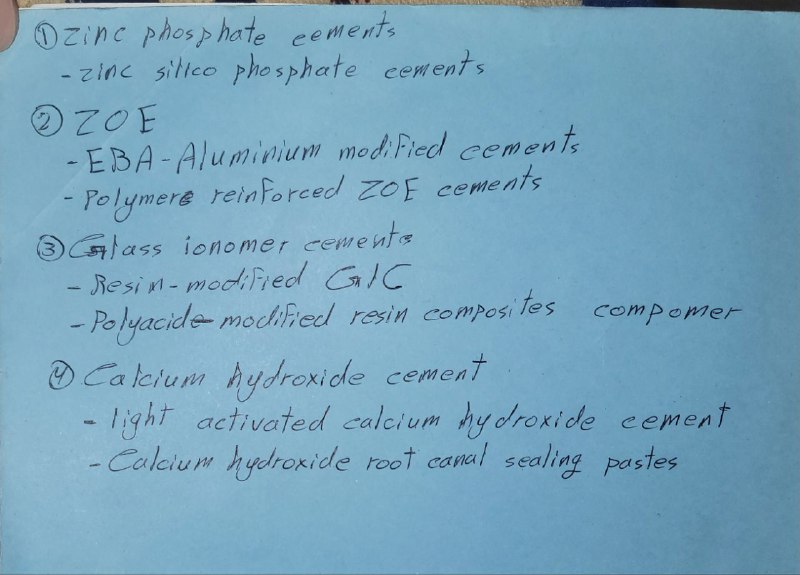 ① Zinc phosphate cements
- zinc silico phosphate cements
② ZOE
- EBA-Aluminium modified cements
- Polymere reinforced ZOE cements
③ Glass ionomer cements
- Resin-modified GIC
- Polyacid-modified resin composites compomer
④ Calcium hydroxide cement
- light activated calcium hydroxide cement
- Calcium hydroxide root canal sealing pastes